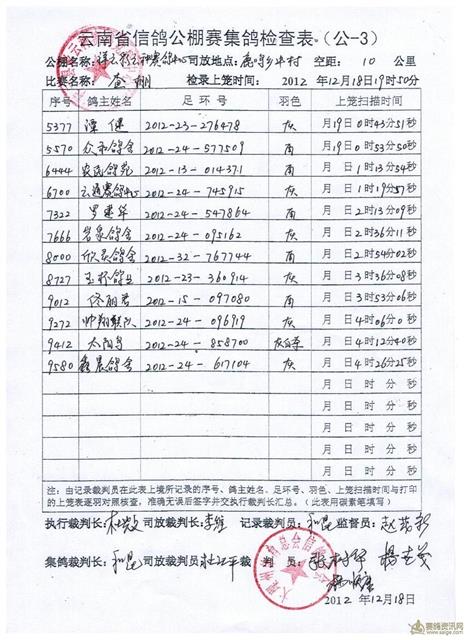 云南省信鸽公棚赛集鸽检查表(公-3)
公棚名称: 司放地点: 空距: 10 公里
比赛名称: 检录上笼时间: 2012年12月18日19时50分
序号 鸽主姓名 足环号 羽色 上笼扫描时间
5377 谭健 2012-23-276478 灰 月19日0时43分51秒
5570 众和鸽舍 2012-24-577509 雨 月19日0时53分50秒
6444 农民鸽苑 2012-13-014371 雨 月 日1时13分54秒
6700 云通赛鸽中心 2012-24-745915 灰 月 日1时19分57秒
7322 罗建军 2012-24-547864 雨 月 日2时13分09秒
7666 岩泉鸽舍 2012-24-095162 灰 月 日2时36分11秒
8000 欣灵鸽舍 2012-32-767744 雨 月 日2时54分02秒
8727 玉桥鸽业 2012-23-360914 灰 月 日3时36分08秒
9012 佟丽君 2012-15-097080 雨 月 日3时53分06秒
9272 帅翔联队 2012-24-096919 灰 月 日4时06分0秒
9412 太阳鸟 2012-24-858700 灰白条 月 日4时12分40秒
9580 鑫晨鸽舍 2012-24-617104 灰 月 日4时26分25秒
月 日 时 分 秒
月 日 时 分 秒
月 日 时 分 秒
月 日 时 分 秒
月 日 时 分 秒
注:由记录裁判员在此表上填所记录的序号、鸽主姓名、足环号、羽色、上笼扫描时间与打印
的上笼表逐羽对照核查。准确无误后签字并交执行裁判长汇总。(此表用碳素笔填写)
执行裁判长: 司放裁判长: 记录裁判员: 和昆 监督员:
集鸽裁判长: 和昆 司放裁判员: 裁判员:
2012年12月18日
赛鸽资讯网
www.saige.com